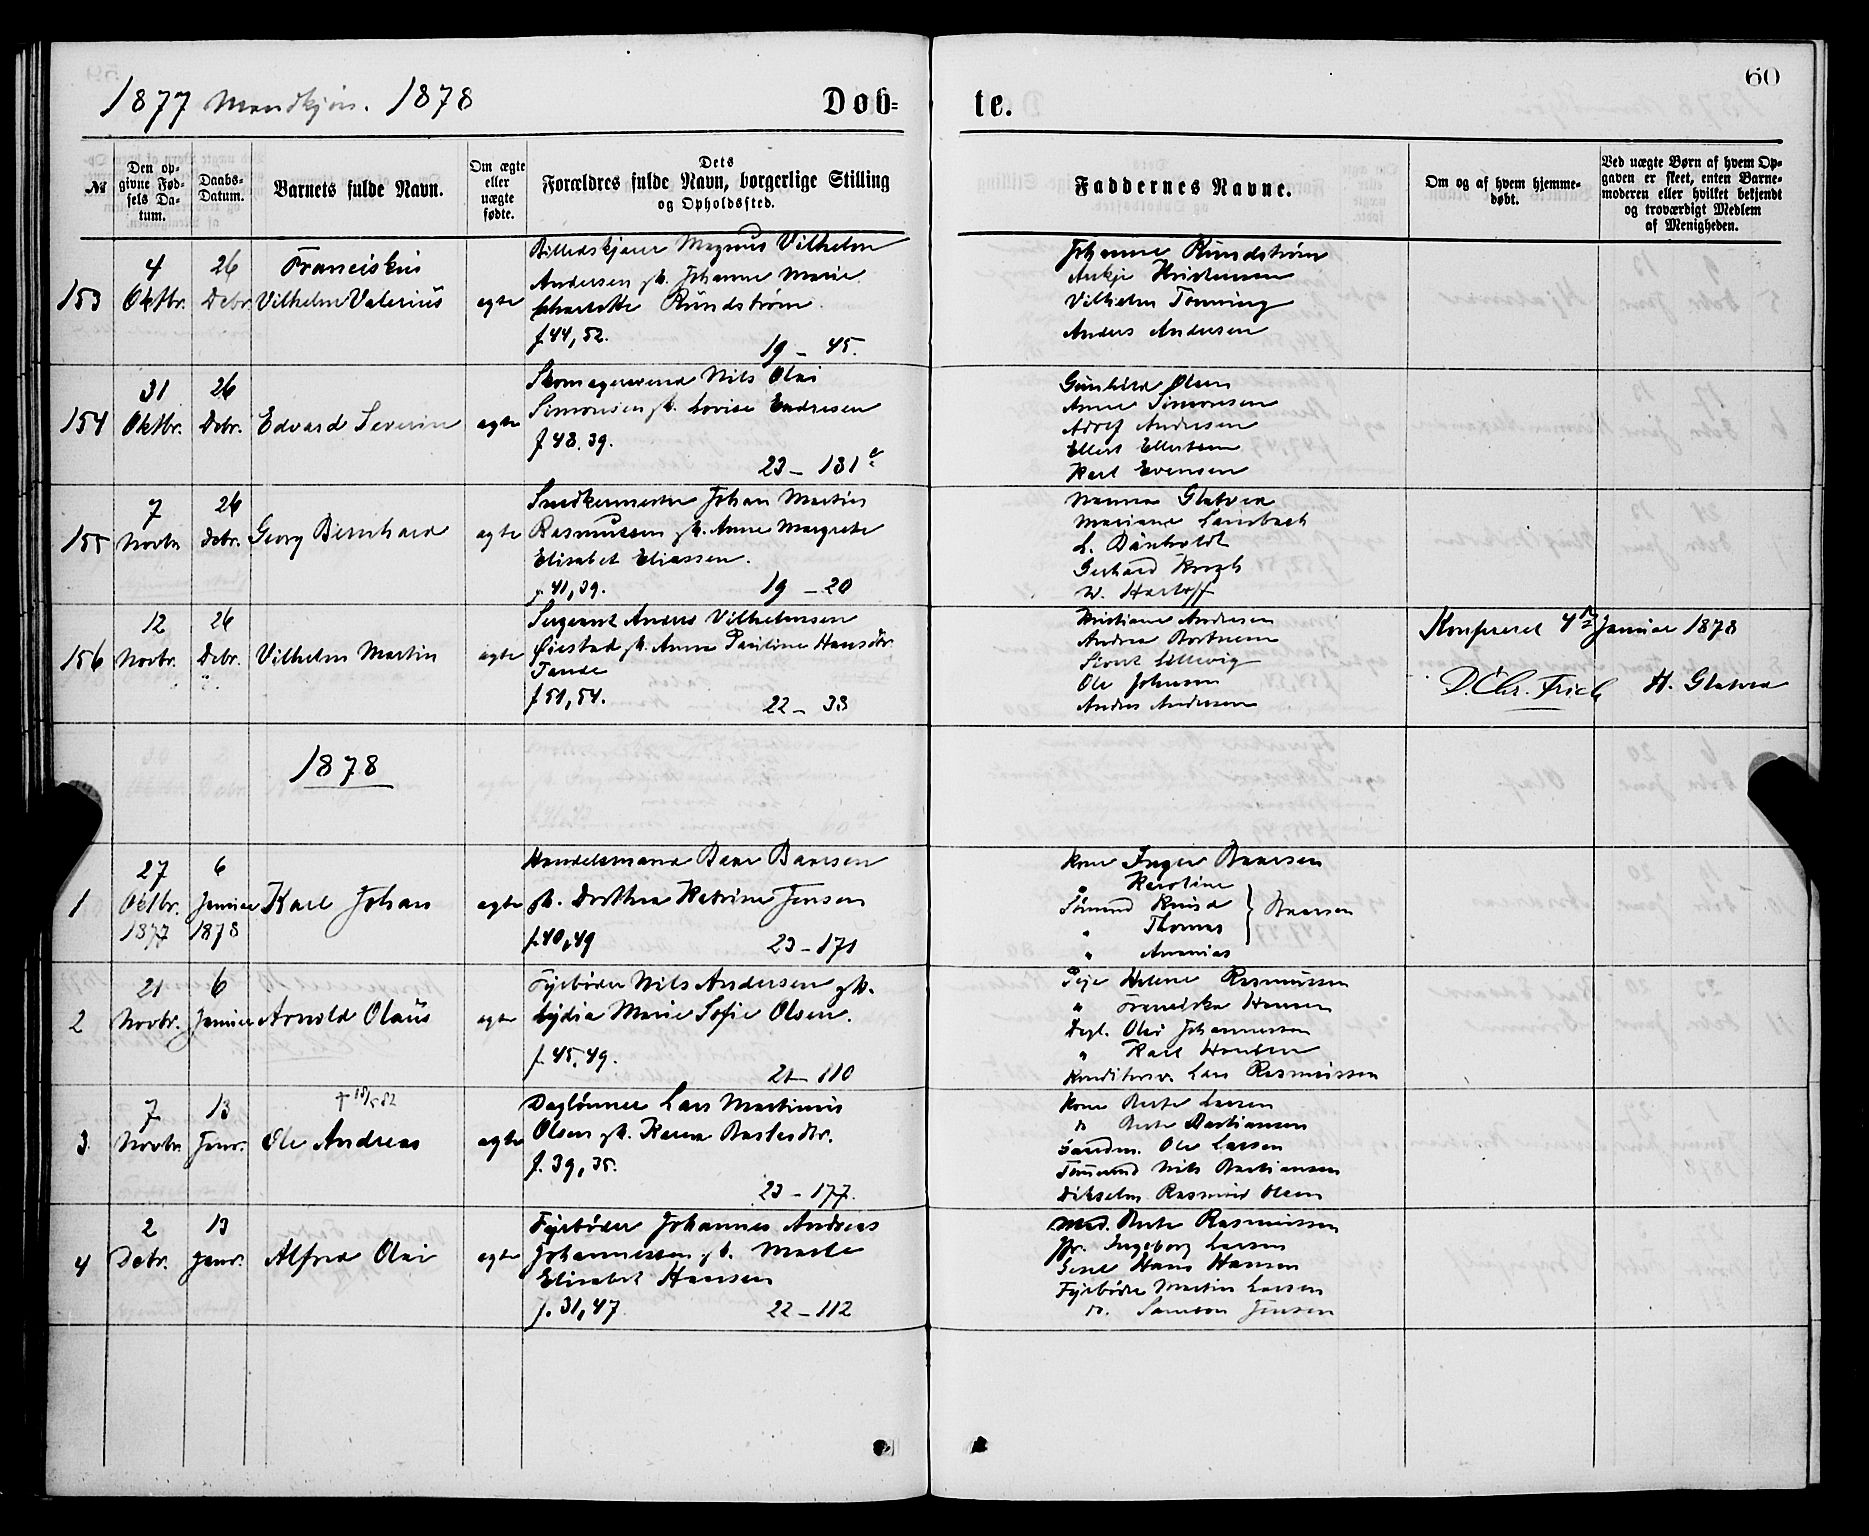 1877 Mandkjøn. 1878
Døb-
te.
60
№
Den op-
givne Fød-
sels Da-
tum.
Daabs-
Datum.
Barnets fulde Navn.
Om ægte
eller
uægte
fødte.
Dets
Forældres fulde Navn, borgerlige Stilling
og Opholdssted.
Faddernes Navne.
Om og af hvem hjemme-
døbt.
Ved uægte Børn af hvem Op-
gaven er skeet, enten Barne-
moderen eller hvilket bekjendt
og troværdigt Medlem
af Menigheden.
153
4
Oktbr.
26
Debr.
Franciskus
Vilhelm Valerius
ægte
Billedskjærer Magnus Vilhelm
Andersen gk. Johanne Marie
Charlotte Rundstrøm.
f. 44, 52.
19 - 45.
Johanne Rundstrøm
Kristensen
Vilhelm Tønning
Anders Andersen
154
31
Oktbr.
26
Debr.
Edvard Severin
ægte
Skomagersvend Nils Olai
Simonsen gk. Lovise Endresen
f. 48. 39.
23 - 131
Gunhild Olsen
Anne Simonsen
Adolf Andersen
Ellert Ellertsen
Karl Evensen
155
7
Novbr
26
Debr.
Georg Bernhard
ægte
Snedkermester Johan Martin
Rasmussen gk. Anne Margrete
Elisabet Eliassen.
f. 41, 39.
19 - 20
Nanna Glatved
Mariane Lambach
L. Danholdt
Gerhard Krogh
W. Hartoff
156
12
Novbr.
26
Debr.
Vilhelm Martin
ægte
Sergeant Anders Vilhelmsen
Øiestad gk. Anna Pauline Hansdtr
Tande
f. 51, 54.
22 - 33
Kristiane Andersen
Andrea
Sivert Lillevig
Ole Johnsen
Anders Andersen
Konfereret 4de Januar 1878
D. Chr. Frich
H. Glatved
1878
1
27
Oktbr.
1877
6
Januar
1878
Karl Johan
ægte
Handelsmand Baar Baarsen
gk. Dorthea Katrine Jensen
f. 40, 49
23 - 171
Kone Inger Baarsen
" Karoline
Sømand Knud } Baarsen
" Thomas
" Ananias
2
21
Novbr.
6
Januar
Arnold Olaus
ægte
Fyrbøder Nils Andersen gk.
Lydia Marie Sofie Olsen.
f. 45, 49.
21 - 110
Pige Helene Rasmussen
" Franciska Hansen
Dagl. Olai Johannessen
" Karl
Konditorsv. Lars Rasmussen
3.
7
Novbr
13
Janr.
† 18/5 82
Ole Andreas
ægte
Daglønner Lars Martinus
Olsen gk. Karen Basteesdtr.
f. 39, 35.
23 - 177.
Kone Berte Larsen
do Berte Bastiansen
Gaardm. Ole Larsen
Tømmermd Nils Bastiansen
Rasmus Olsen
4
2
Debr.
13
Janr.
Alfred Olai
ægte
Fyrbøder Johannes Andreas
Johannessen gk. Marte
Elisabet Hansen
f. 31, 47.
22 - 112
Mad. Berte Rasmussen
Jfr. Ingeborg Larsen
Hans Hansen
Fyrbøder Martin Larsen
do. Samson Jensen